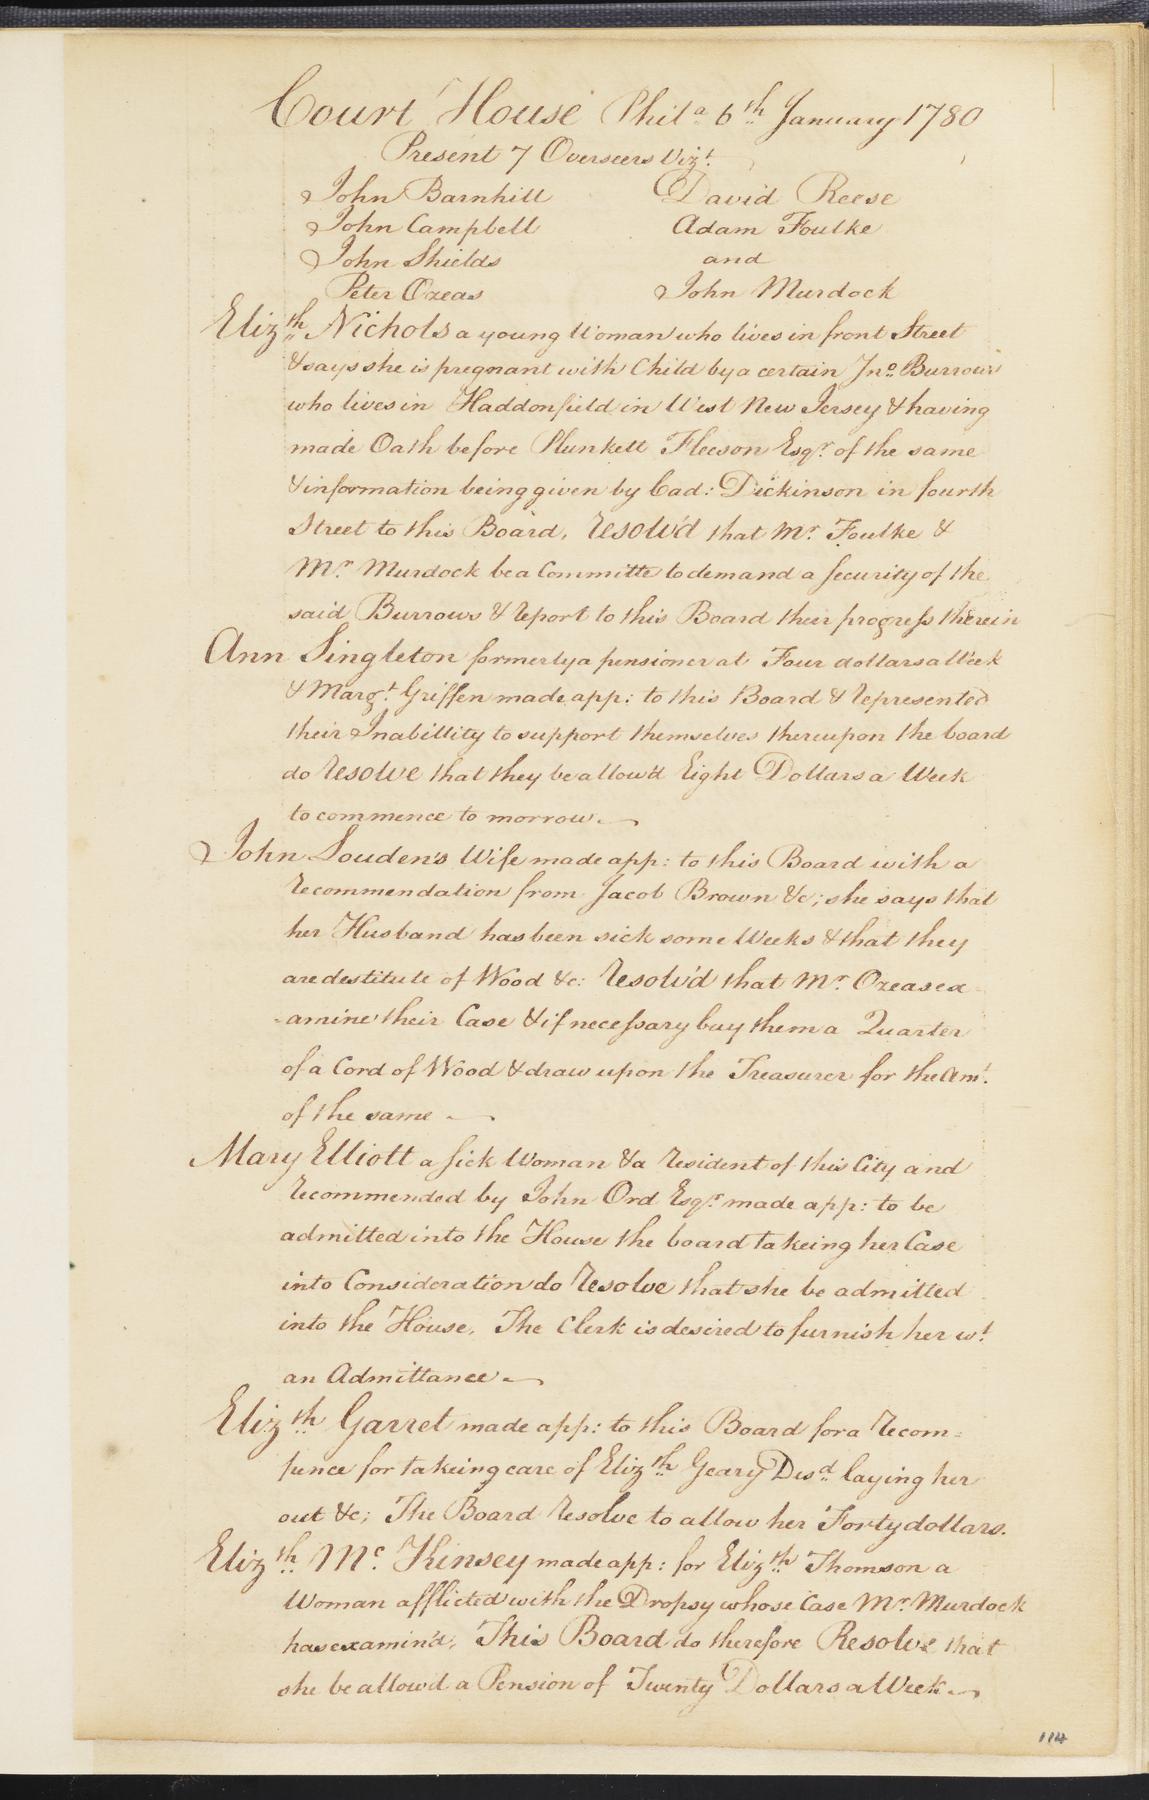 Court House Phila 6th January 1780
Present 7 Overseers Vizt.
John Barnhill David Reese
John Campbell Adam Foulke
John Shields and
Peter Ozeas John Murdock
Elizth Nichols a young Woman who lives in front Street
& says she is pregnant with Child by a certain Jno. Burrows
who lives in Haddonfield in West New Jersey & having
made Oath before Plunkett Fleeson Esqr. of the same
& information being given by Cad: Dickinson in fourth
Street to this Board, resolv'd that Mr. Foulke &
Mr. Murdock be a Committe to demand a Security of the
said Burrows & report to this Board their progress therein
Ann Singleton formerly a pensioner at Four dollars a Week
& Margt. Griffen made app: to this Board & represented
their Inabillity to support themselves thereupon the board
do resolve that they be allow'd Eight Dollars a Week
to commence to morrow.—
John Louden's Wife made app: to this Board with a
recommendation from Jacob Brown &c; she says that
her Husband has been sick some Weeks & that they
are destitute of Wood &c: resolv'd that Mr. Ozeas ex-
-amine their Case & if necessary buy them a Quarter
of a Cord of Wood & draw upon the Treasurer for the Amt.
of the same —
Mary Elliott a Sick Woman & a resident of this City and
recommended by John Ord Esqr. made app: to be
admitted into the House the board takeing her Case
into Consideration do resolve that she be admitted
into the House. The Clerk is desired to furnish her wt.
an Admittance —
Elizth Garret made app: to this Board for a recom=
pence for takeing care of Elizth Geary Desd laying her
out &c; The Board resolve to allow her Forty dollars.
Elizth Mc. Kinsey made app: for Elizth Thomson a
Woman afflicted with the Dropsy whose Case Mr. Murdock
has examin'd, This Board do therefore Resolve that
she be allow'd a Pension of Twenty Dollars a Week —
114